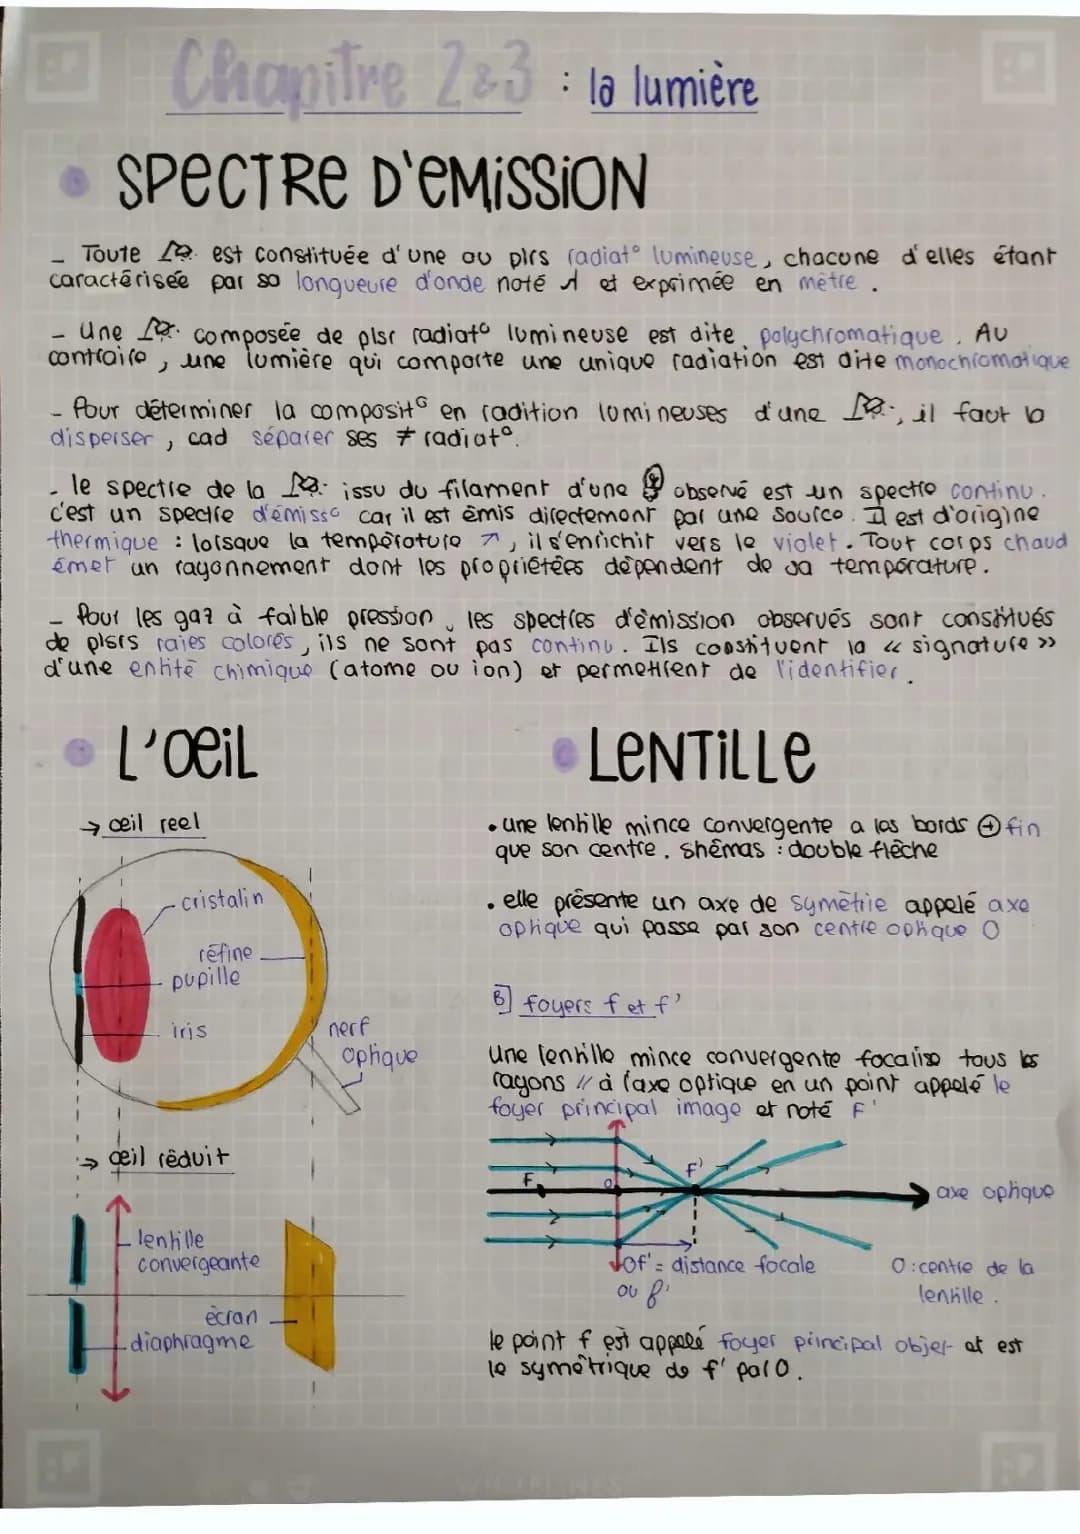 Chapitre 2&3 : la lumière
SPECTRE D'EMISSION
- Toute est constituée d'une ou plrs radiat° lumineuse, chacune d'elles étant
caractérisée par sa longueure d'onde noté λ et exprimée en mètre.
- Une composée de plsr radiat° lumineuse est dite polychromatique. Au
contraire, une lumière qui comporte une unique radiation est dite monochromatique
- Pour déterminer la composit° en radition lumineuses d'une, il faut la
disperser, cad séparer ses ≠ radiat°.
- le spectre de la issu du filament d'une observé est un spectre continu.
c'est un spectre d'émiss° car il est émis directement par une source. Il est d'origine
thermique : lorsque la température ↗, il s'enrichit vers le violet. Tout corps chaud
émet un rayonnement dont les propriétées dépendent de sa température.
- Pour les gaz à faible pression, les spectres d'émission observés sont constitués
de plsrs raies colorés, ils ne sont pas continu. Ils constituent la « signature »
d'une entité chimique (atome ou ion) et permettrent de l'identifier.
L'OEIL
→ œil reel
cristalin
rétine
pupille
iris
nerf
optique
→ œil réduit
lentille
convergeante
écran
diaphragme
LENTILLE
• une lentille mince convergente a les bords ⊕ fin
que son centre. shémas : double flèche
• elle présente un axe de symètrie appelé axe
optique qui passe par son centre optique O
B] foyers f et f'
Une lentille mince convergente focalise tous les
rayons // à l'axe optique en un point appelé le
foyer principal image et noté F'
F
O
F'
axe optique
Of' = distance focale
ou f'
O : centre de la
lentille.
le point f est appelé foyer principal objet et est
le symétrique de f' par O.